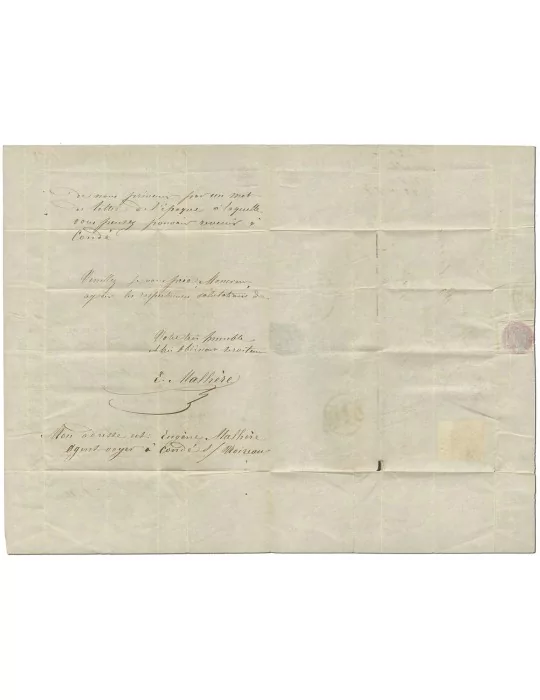 de nous prévenir par un mot
de lettre de l'époque à laquelle
vous pensez pouvoir revenir à
Condé
Veuillez je vous prie, Monsieur
agréer les respectueuses salutations de
Votre très humble
et très obéissant serviteur
E. Mathère
Mon adresse est Eugène Mathère
agent voyer à Condé s/ Noireau